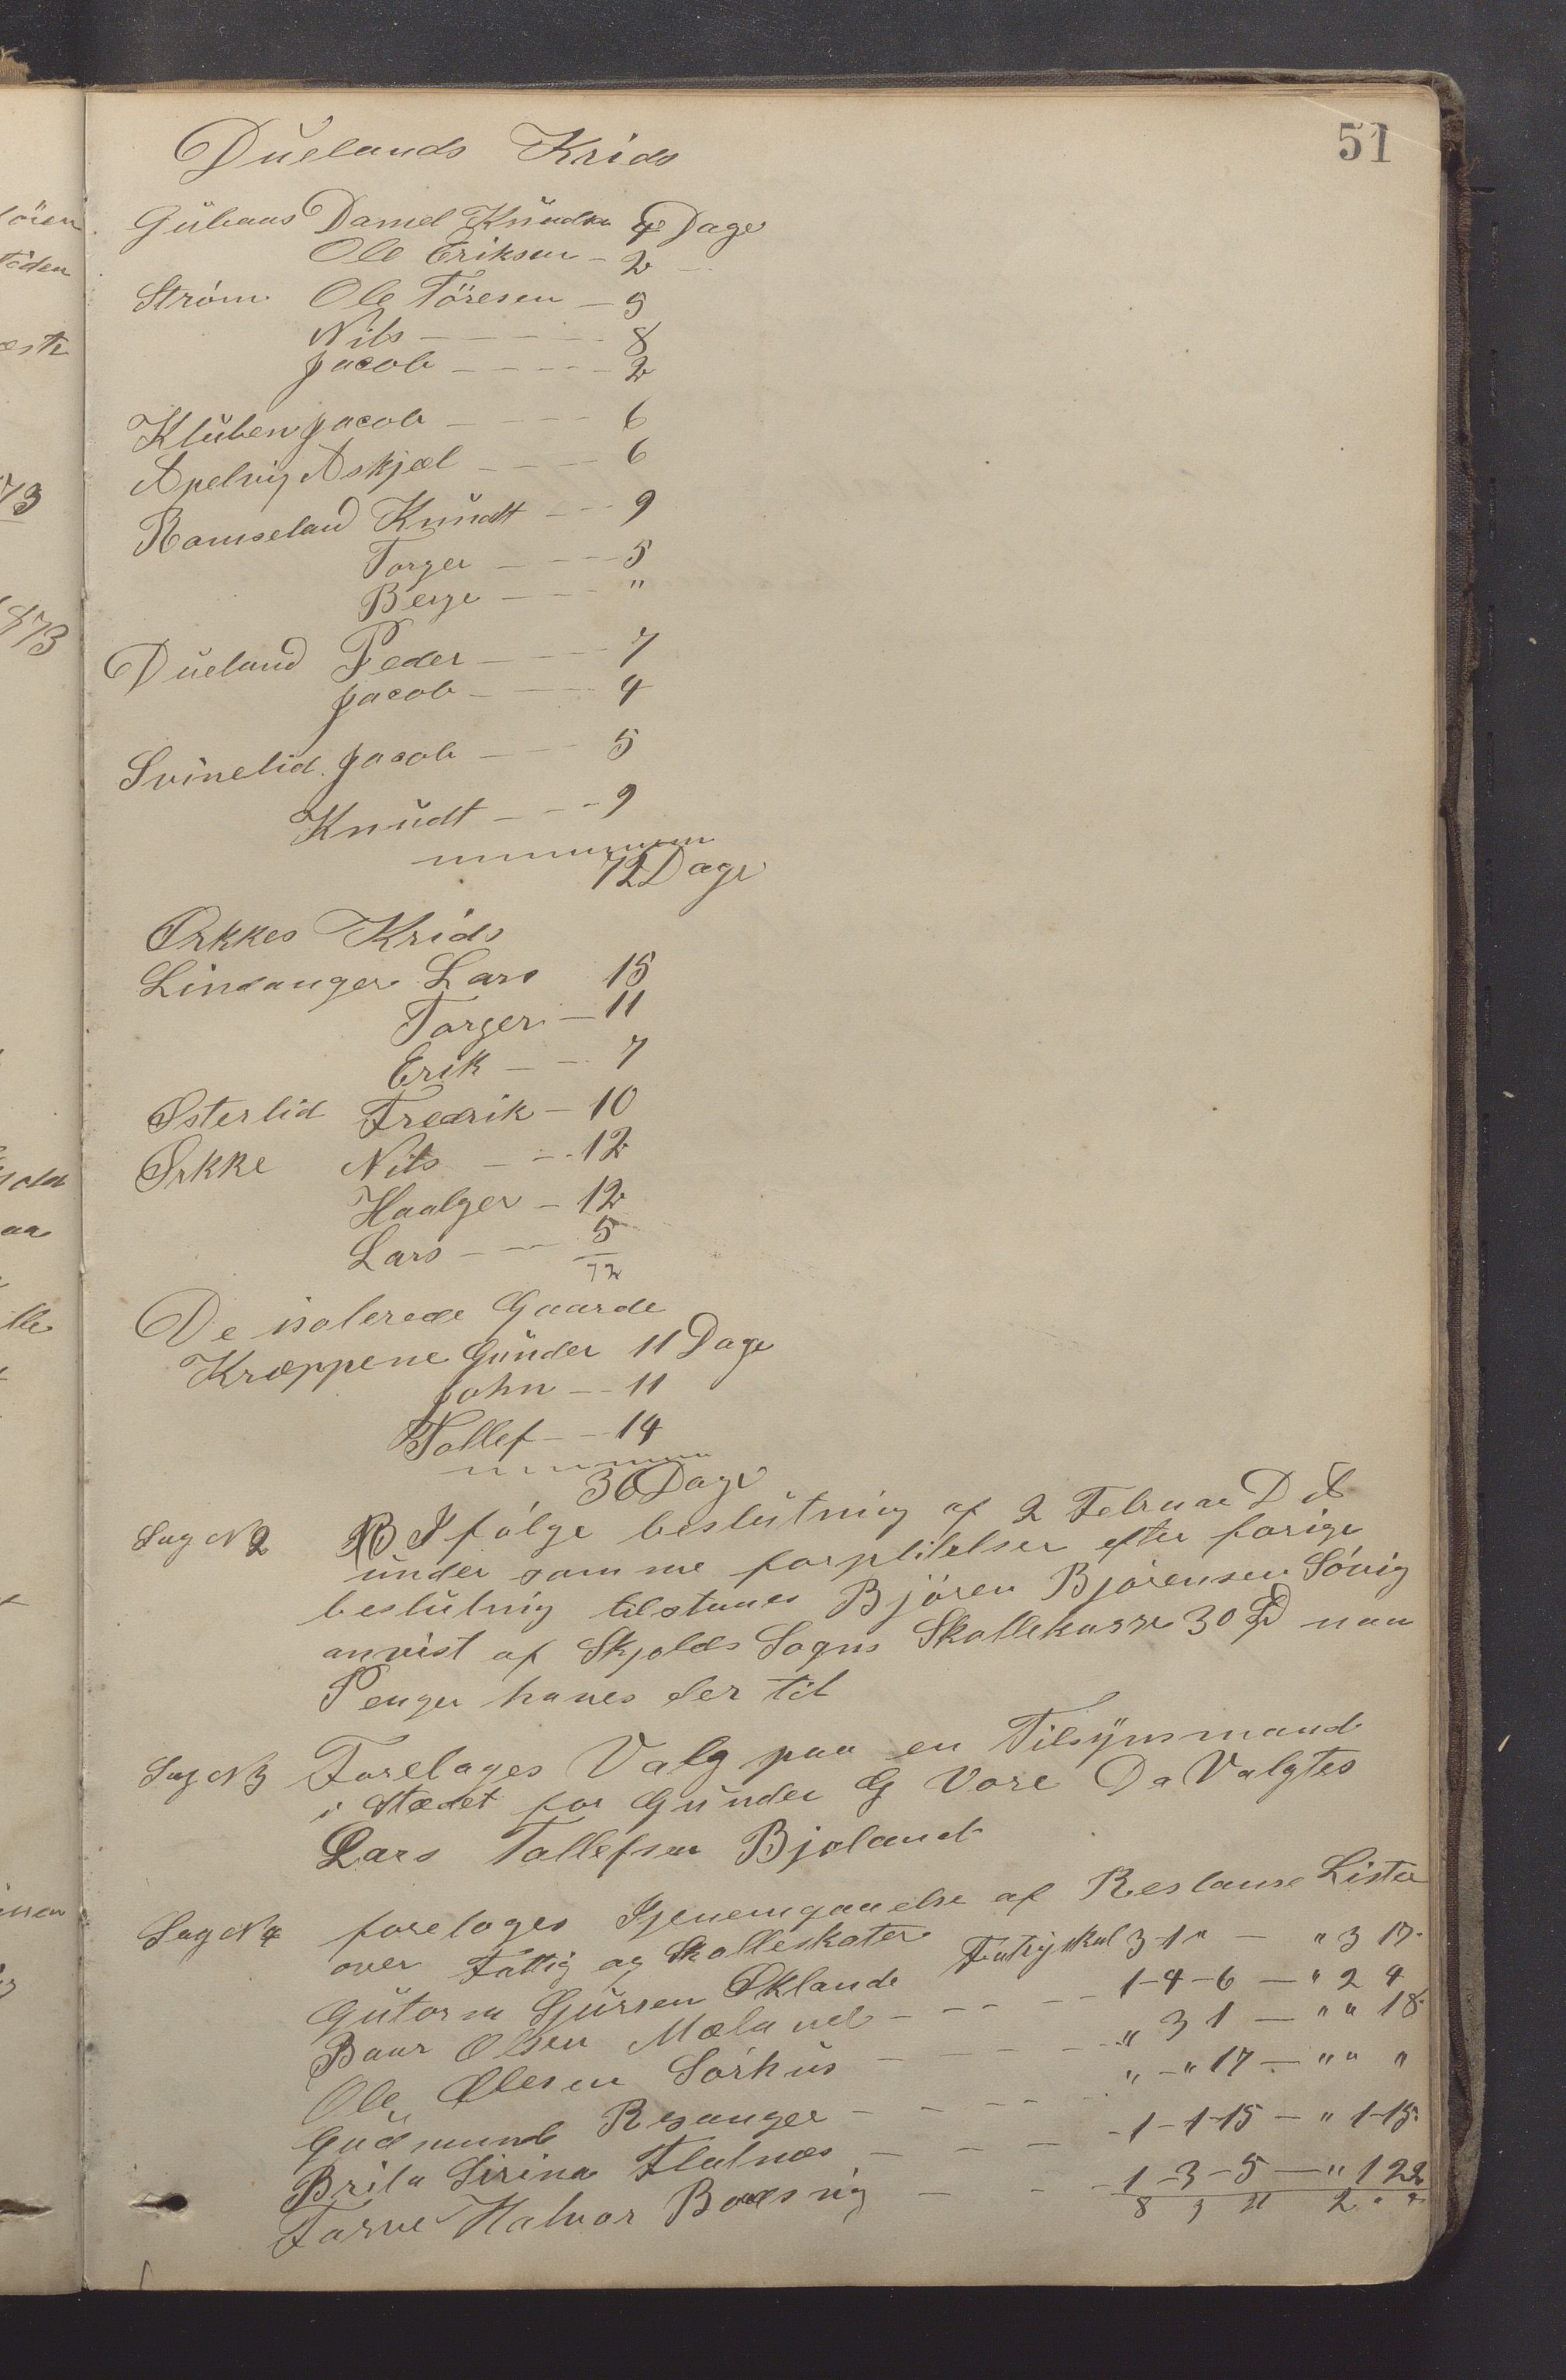 51
Düelands Krids
Gübaas Daniel Knüdsen 4 Dage
Ole Eriksen - 2 -
Strøm Ole Töresen - 5
Nils - - - - - 8
Jacob - - - - - 2
Klüben Jacob - - - - 6
Apelvig Askjæl - - - - 6
Ramseland Knüdt - - - 9
Torger - - - - 5
Berge - - - "
Düeland Peder - - - - 7
Jacob - - - - 4
Svinelid Jacob - - - 5
Knüdt - - - 9
72 Dage
Ørkkes Krids
Lindanger Lars 15
Torger - 11
Erik - - 7
Østerlid Fredrik - 10
Ørkke Nils - - - 12
Haalger - 12
Lars - - - 5
72
De isolerede Gaarde
Kræppene Günder 11 Dage
John - - 11
Tollef - - 14
36 Dage
Sag N 2 B Ifølge beslutning af 2 Februar D A
ünder samme forplitelser efter forige
beslütning tilstaaes Björen Bjørensen Sövig
anvist af Skjolds Sogns Skollekasse 30 naa
Penger haves der til
Sag N 3 Foretoges Valg paa en Tilsÿnsmand
i Stædet for Günder G Vore Da Valgtes
Lars Tollefsen Bjoland
Sag N 4 foretoges Gjenemgaaelse af Restanse Lister
over Fattig og Skolleskater
Gütorm Sjürsen Økland Fatigskat 3-1 " - " 3 17
Baar Olsen Mæland - - - - 1-4-6 - " 2 4
Ole Olesen Sørhüs - - - - " 3 1 - " " 18
Güdmund Røsanger - - - - " - " 17 - " " "
Brita Sirina Flatnæs - - - - 1-1-15 - " 1-15
Halvor - - - 1-3-5 - " 1 22
8 3 2